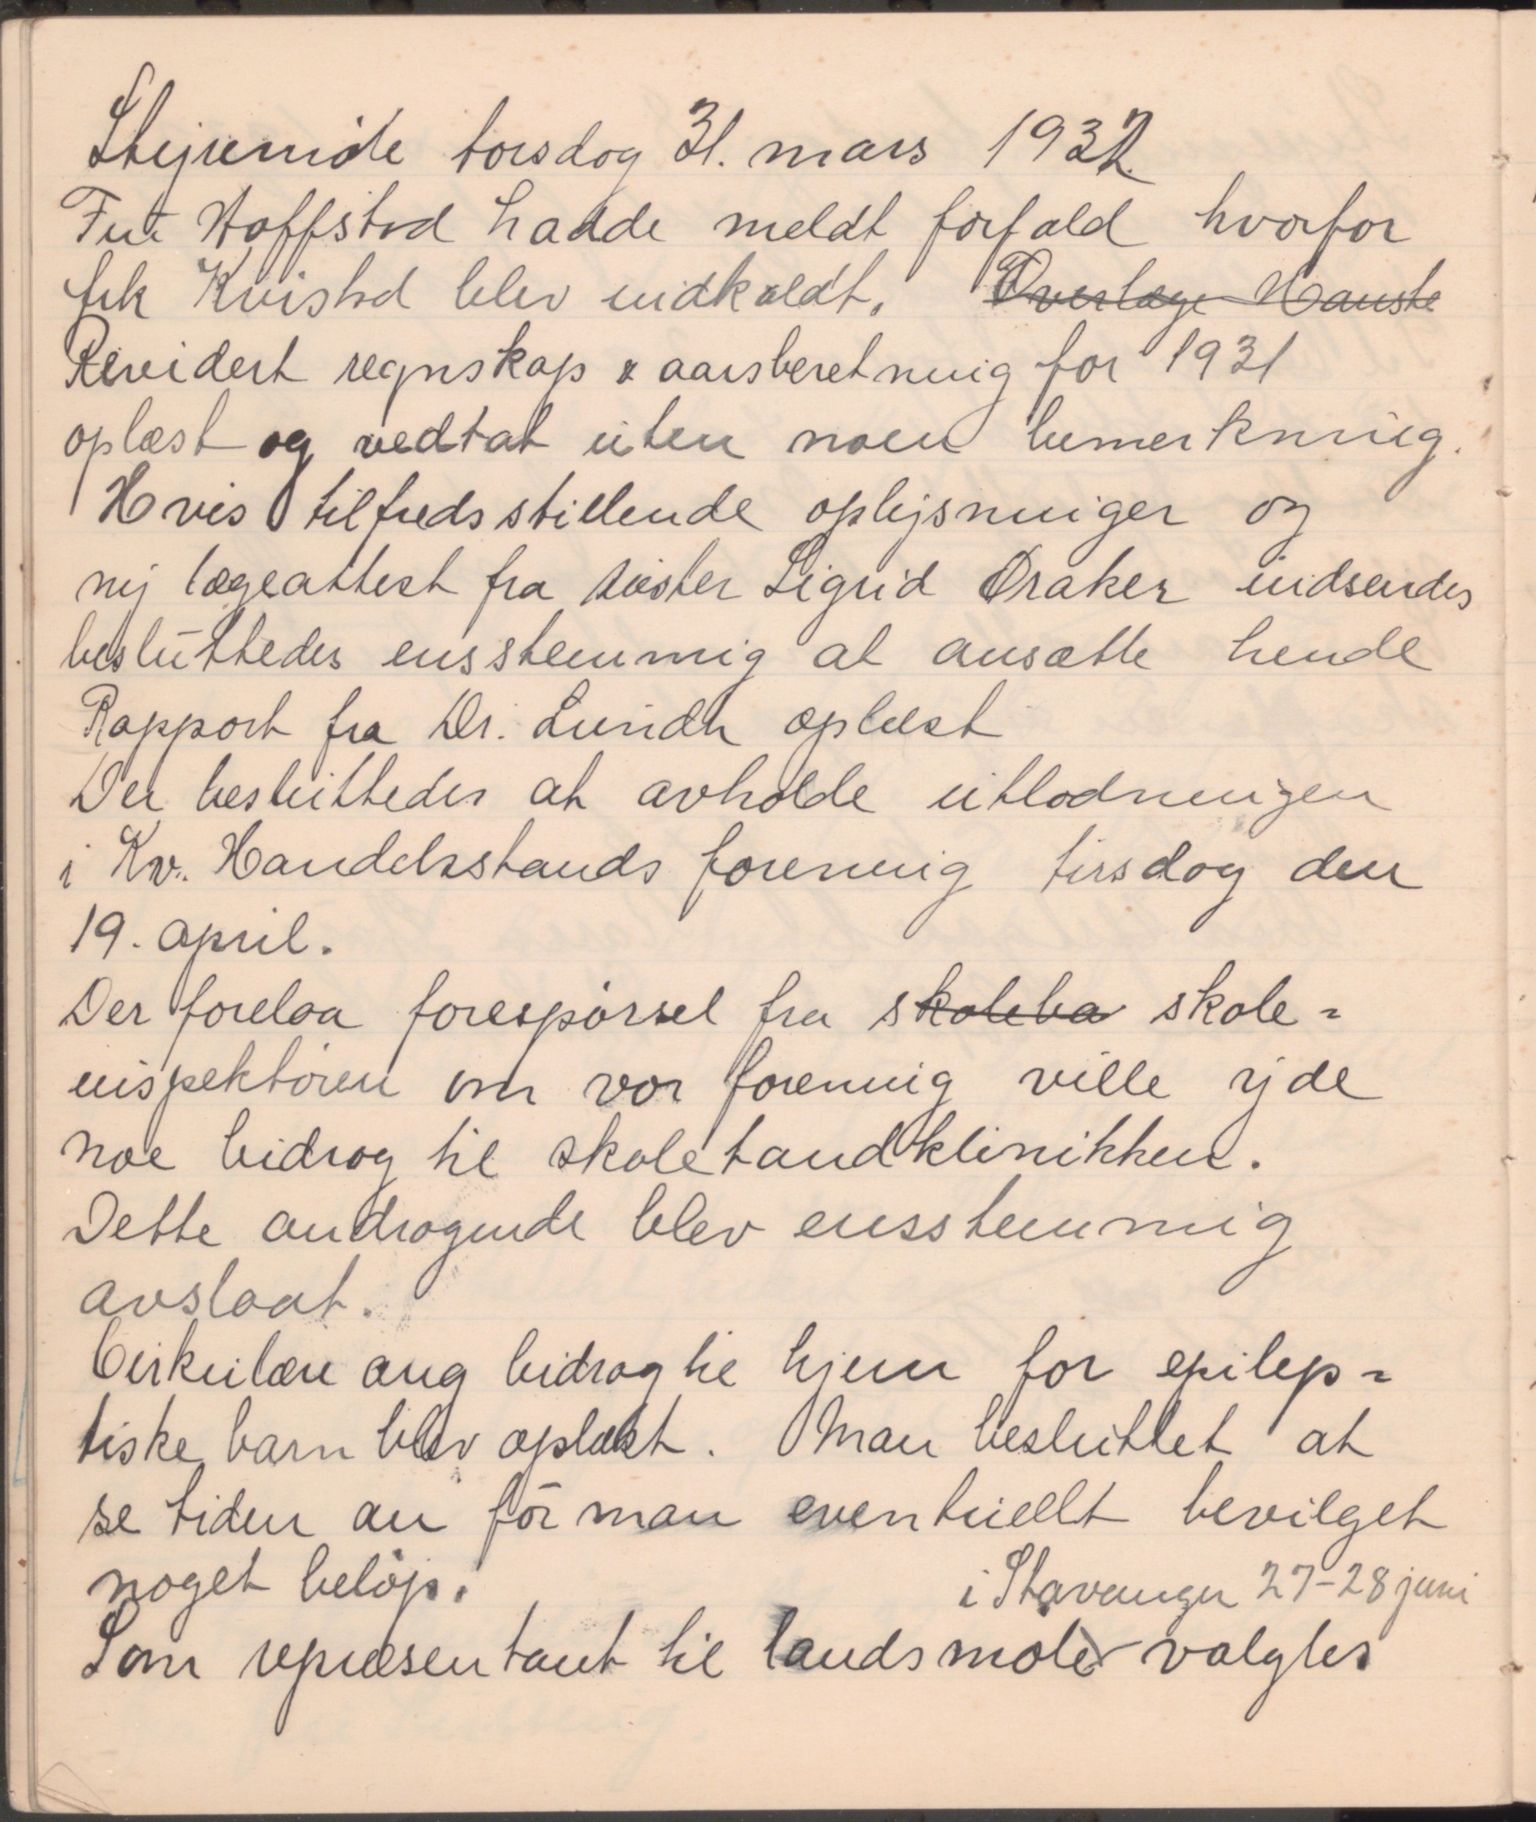 Styremöte torsdag 31. mars 1932.
Fru Hoffstad hadde meldt forfald hvorfor
frk Kvistad blev indkaldt. Overlæge Hanske
Revidert regnskap & aarsberetning for 1931
oplæst og vedtat uten noen bemerkning.
Hvis tilfredsstillende oplysninger og
ny lægeattest fra söster Sigrid Øraker indsendes
besluttedes ensstemmig at ansætte hende
Rapport fra Dr. Lundh oplæst
Der besluttedes at avholde utlodningen
i Kv. Handelsstands forening tirsdag den
19. april.
Der forelaa forespörsel fra skoleba skole=
inspektören om vor forening ville yde
noe bidrag til skoletandklinikken.
Dette andragende blev ensstemmig
avslaat.
Cirkulære ang bidrag til hjem for epilep=
tiske barn blev oplæst. Man besluttet at
se tiden an för man eventuellt bevilget
noget belöp.
i Stavanger 27-28 juni
Som repræsentant til landsmöte valgtes